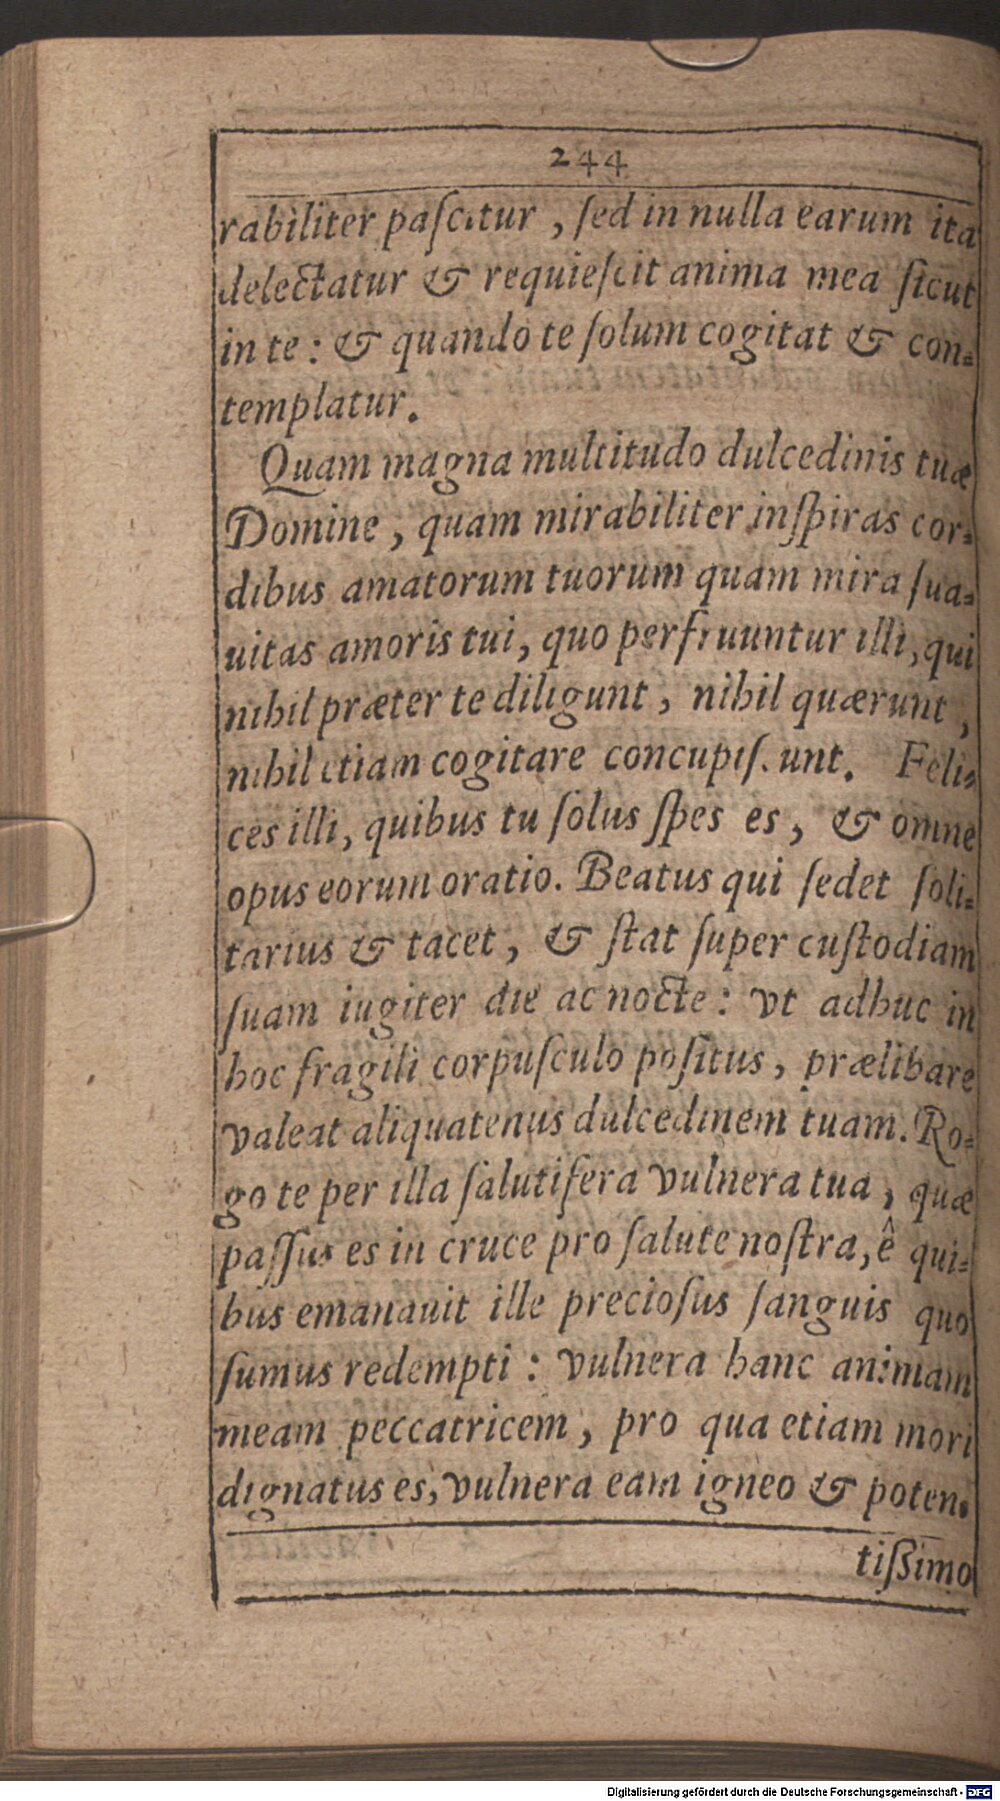 244
rabiliter paſcitur, ſed in nulla earum ita
delectatur & requieſcit anima mea ſicut
in te: & quando te ſolum cogitat & con-
templatur.
Quam magna multitudo dulcedinis tuæ
Domine, quam mirabiliter inſpiras cor-
dibus amatorum tuorum quam mira ſua-
uitas amoris tui, quo perfruuntur illi, qui
nihil præter te diligunt, nihil quærunt,
nihil etiam cogitare concupiſ.unt. Feli-
ces illi, quibus tu ſolus ſpes es, & omne
opus eorum oratio. Beatus qui ſedet ſoli-
tarius & tacet, & ſtat ſuper cuſtodiam
ſuam iugiter die ac nocte: vt adhuc in
hoc fragili corpuſculo poſitus, prælibare
valeat aliquatenus dulcedinem tuam. Ro-
go te per illa ſalutifera vulnera tua, quæ
paſſus es in cruce pro ſalute noſtra, ê qui-
bus emanauit ille precioſus ſanguis quo
ſumus redempti: vulnera hanc animam
meam peccatricem, pro qua etiam mori
dignatus es, vulnera eam igneo & poten-
tißimo
Digitalisierung gefördert durch die Deutsche Forschungsgemeinschaft - DFG